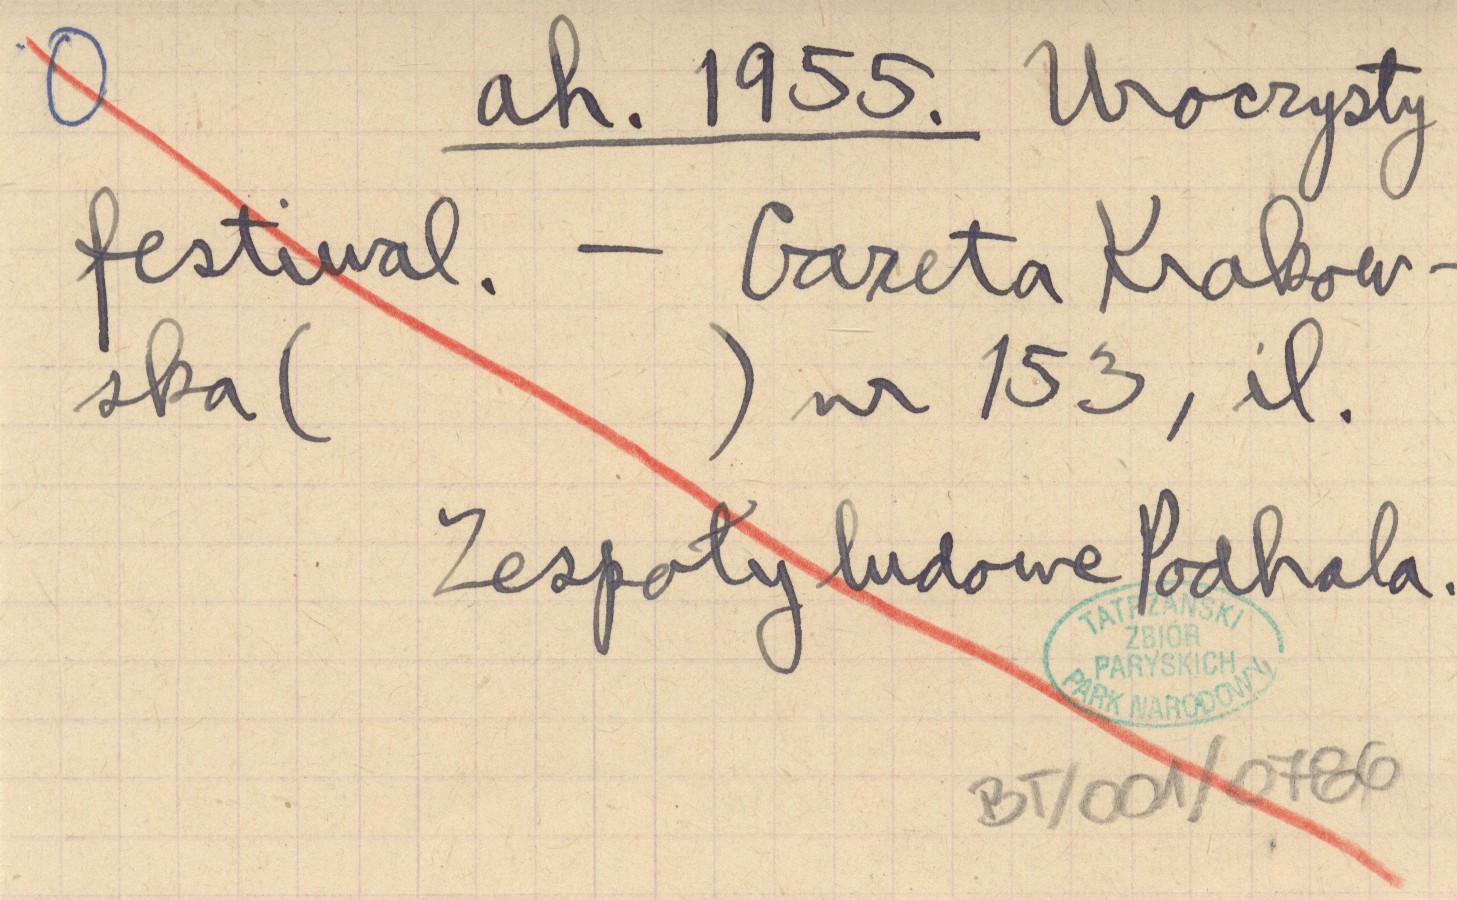 O ah. 1955. Uroczysty
festiwal. — Gazeta Krakow-
ska ( ) nr 153, il.
Zespoły ludowe Podhala.
TATRZAŃSKI
ZBIÓR
PARYSKICH
PARK NARODOWY
BT/001/0786